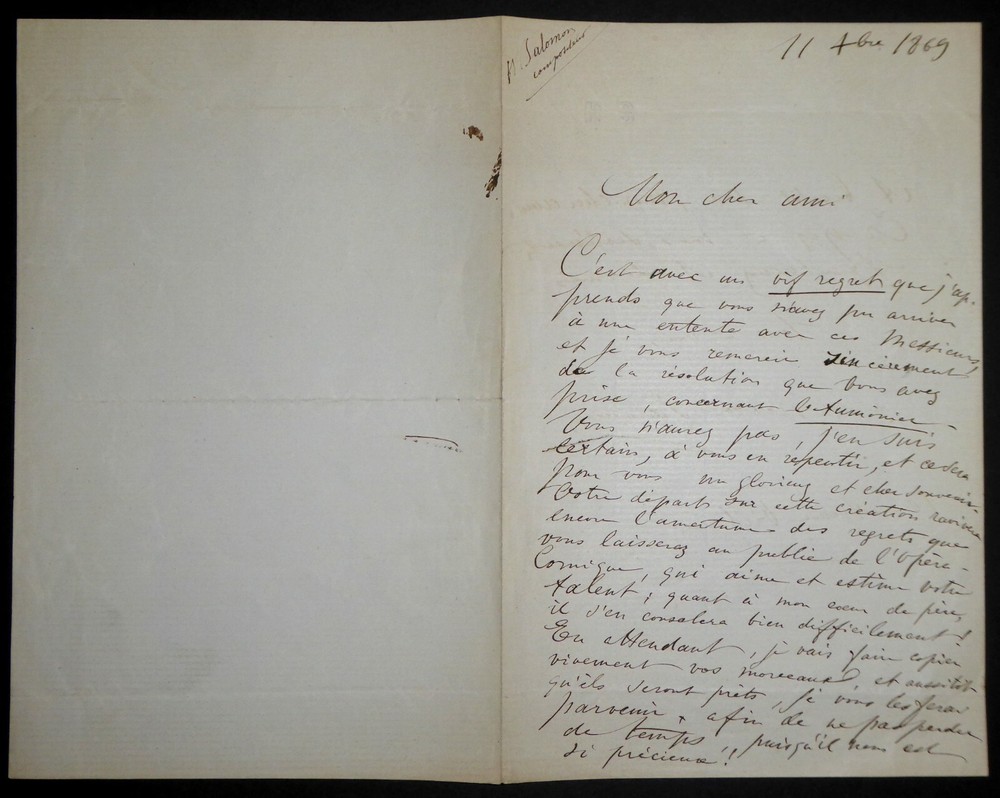 H. Salomon
compositeur
11 Xbre 1869
Mon cher ami
C'est avec un vif regret que j'ap-
prends que vous n'avez pu arriver
à une entente avec ces Messieurs,
et je vous remercie sincèrement
de la résolution que vous avez
prise, concernant l'Aumônier.
Vous n'aurez pas, j'en suis
certain, à vous en repentir, et ce sera
pour vous un glorieux et cher souvenir.
Votre départ sur cette création ravivera
encore l'amertume des regrets que
vous laisserez au public de l'Opéra-
Comique, qui aime et estime votre
talent; quant à mon coeur de père,
il s'en consolera bien difficilement!
En attendant, je vais faire copier
vivement vos morceaux, et aussitôt
qu'ils seront prêts, je vous les ferai
parvenir, afin de ne pas perdre
de temps, puisqu'il nous est
si précieux!